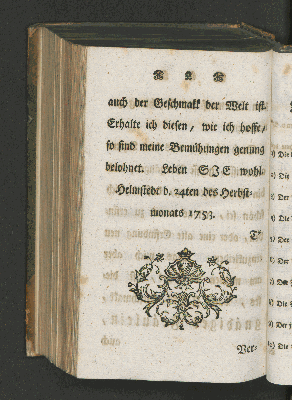 auch der Geschmakk der Welt ist.
Erhalte ich diesen, wie ich hoffe,
so sind meine Bemühungen genung
belohnet. Leben SIE wohl.
Helmstedt d. 24ten des Herbst-
monats 1753.
Ver-